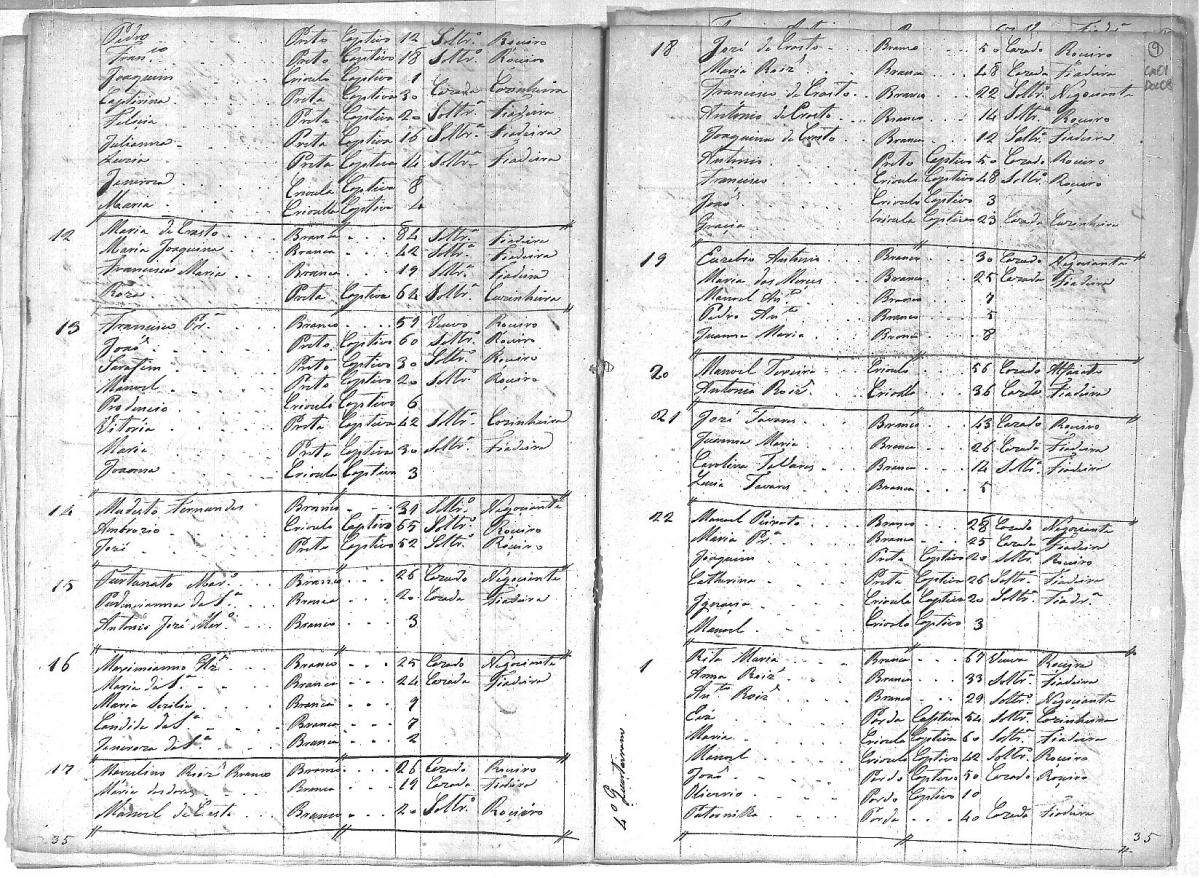 Pedro Preto Captivo 12 Soltrº Roceiro
Franco Preto Captivo 18 Soltrº Roceiro
Joaquim Criolo Captivo 1
Captirina Preta Captiva 30 Cazada Cozinheira
Preta Captiva 20 Soltrª Fiadeira
Julianna Preta Captiva 16 Soltrª Fiadeira
Luzia Preta Captiva 14 Soltrª Fiadeira
Criolla Captiva 8
Maria Criolla Captiva 4
12 Maria de Crasto Branca 84 Soltrª Fiadeira
Maria Joaquina Branca 42 Soltrª Fiadeira
Francisca Maria Branca 19 Soltrª Fiadeira
Roza Preta Captiva 64 Soltrª Cozinheira
13 Francisco Prª Branco 59 Veuvo Roceiro
João Preto Captivo 60 Soltrº Roceiro
Sarafim Preto Captivo 30 Soltrº Roceiro
Manoel Preto Captivo 20 Soltrº Roceiro
Prodencio Criolo Captivo 6
Vitoria Preta Captiva 42 Soltrª Cozinheira
Maria Preta Captiva 30 Soltrª Fiadeira
Joanna Criolla Captiva 3
14 Modesto Fernandes Branco 39 Soltrº Negocianta
Ambrozio Criolo Captivo 55 Soltrº Roceiro
José Preto Captivo 52 Soltrº Roceiro
15 Furtunato Marº Branco 26 Cazado Negocianta
da Sª Branca 20 Cazada Fiadeira
Antonio José Marº Branco 3
16 Maximianno Branco 25 Cazado Negocianta
Maria da Sª Branca 24 Cazada Fiadeira
Maria Sizilia Branca 9
Candida da Sª Branca 7
Jeneroza da Sª Branca 2
17 Marculino Roizˢ Branco Branco 26 Cazado Roceiro
Maria Branca 19 Cazada Fiadeira
Manoel de Branco 20 Soltrº Roceiro
35
9
CAO1
18 José de Crasto Branco 50 Cazado Roceiro
Maria Roizˢ Branca 48 Cazada Fiadeira
Francisco de Crasto Branco 22 Soltrº Negocianta
Antonio de Crasto Branco 14 Soltrº Roceiro
Joaquina de Crasto Branca 12 Soltrª Fiadeira
Antonio Preto Captivo 50 Cazado Roceiro
Francisco Criolo Captivo 48 Soltrº Roceiro
João Criolo Captivo 3
Gracia Criola Captiva 23 Cazada Cuzinheira
19 Euzebio Antonio Branco 30 Cazado Negocianta
Maria das Branca 25 Cazada Fiadeira
Manoel Antº Branco 7
Pedro Antº Branco 5
Juanna Maria Branca 8
20 Manoel Criolo 56 Cazado
Antonia Roizˢ Criolla 36 Cazada Fiadeira
21 José Tavares Branco 43 Cazado Roceiro
Juanna Maria Branca 26 Cazada Fiadeira
Carolina Tavares Branca 14 Soltrª Fiadeira
Luzia Tavares Branca 5
22 Manoel Peixoto Branco 28 Cazado Negocianta
Maria Prª Branca 25 Cazada Fiadeira
Joaquim Preto Captivo 20 Soltrº Roceiro
Catherina Preta Captiva 26 Soltrª Fiadeira
Ignacia Criola Captiva 20 Soltrª Fiadrª
Manoel Criolo Captivo 3
4º Quarteiram
1 Rita Maria Branca 67 Veuva Roceira
Anna Roizˢ Branca 33 Soltrª Fiadeira
Antº Roizˢ Branco 29 Soltrº Negocianta
Parda Captiva 54 Soltrª Cozinheira
Maria Criola Captiva 60 Soltrª Fiadeira
Manoel Criolo Captivo 42 Soltrº Roceiro
João Pardo Captivo 50 Cazado Roceiro
Pardo Captivo 10
Parda 40 Cazada Fiadeira
35